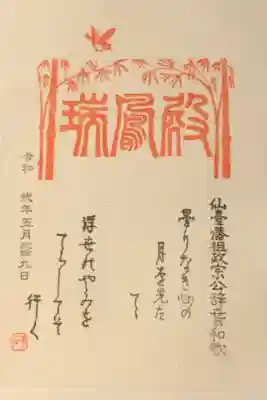 瑞鳳殿
仙臺藩祖政宗公辞世和歌
曇りなき心の
月を先た
てゝ
浮世のやみを
てらしてそ
行く
令和 弐年五月廿九日